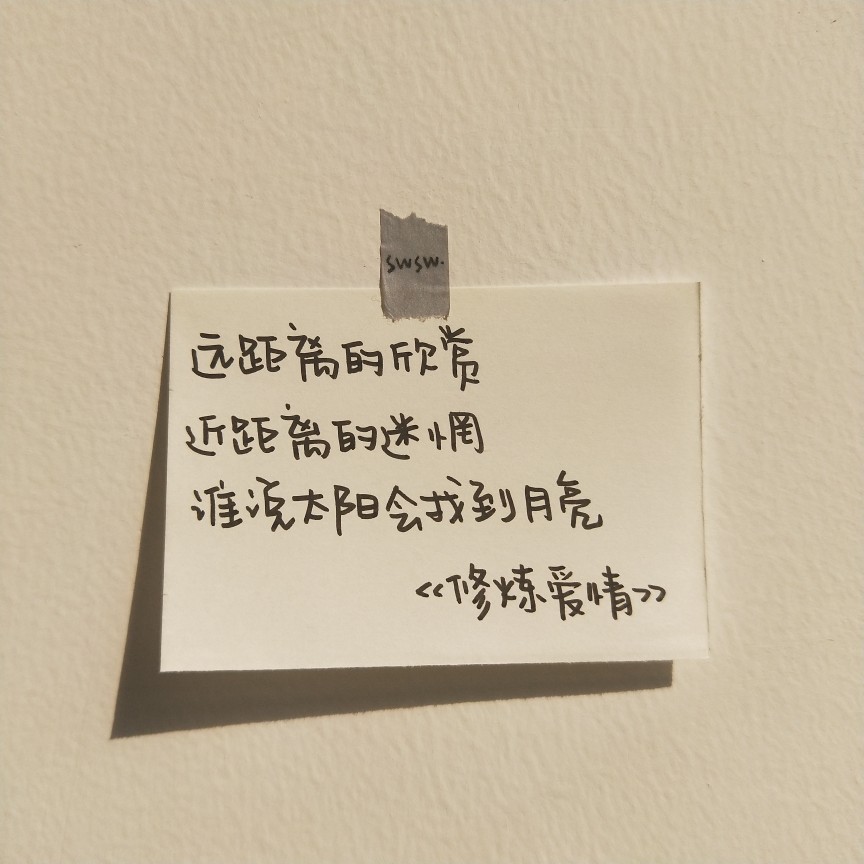 swsw.
远距离的欣赏
近距离的迷惘
谁说太阳会找到月亮
《修炼爱情》